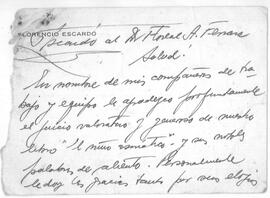 FLORENCIO ESCARDÓ
Escardó al Dr Floreal A. Ferrara
Salud!
En nombre de mis compañeros de tra
bajo y equipo le agradezco profundamente
el juicio valorativo y generoso de nuestro
libro "El niño asmático" y sus nobles
palabras de aliento. Personalmente
le doy las gracias tanto por sus elogios